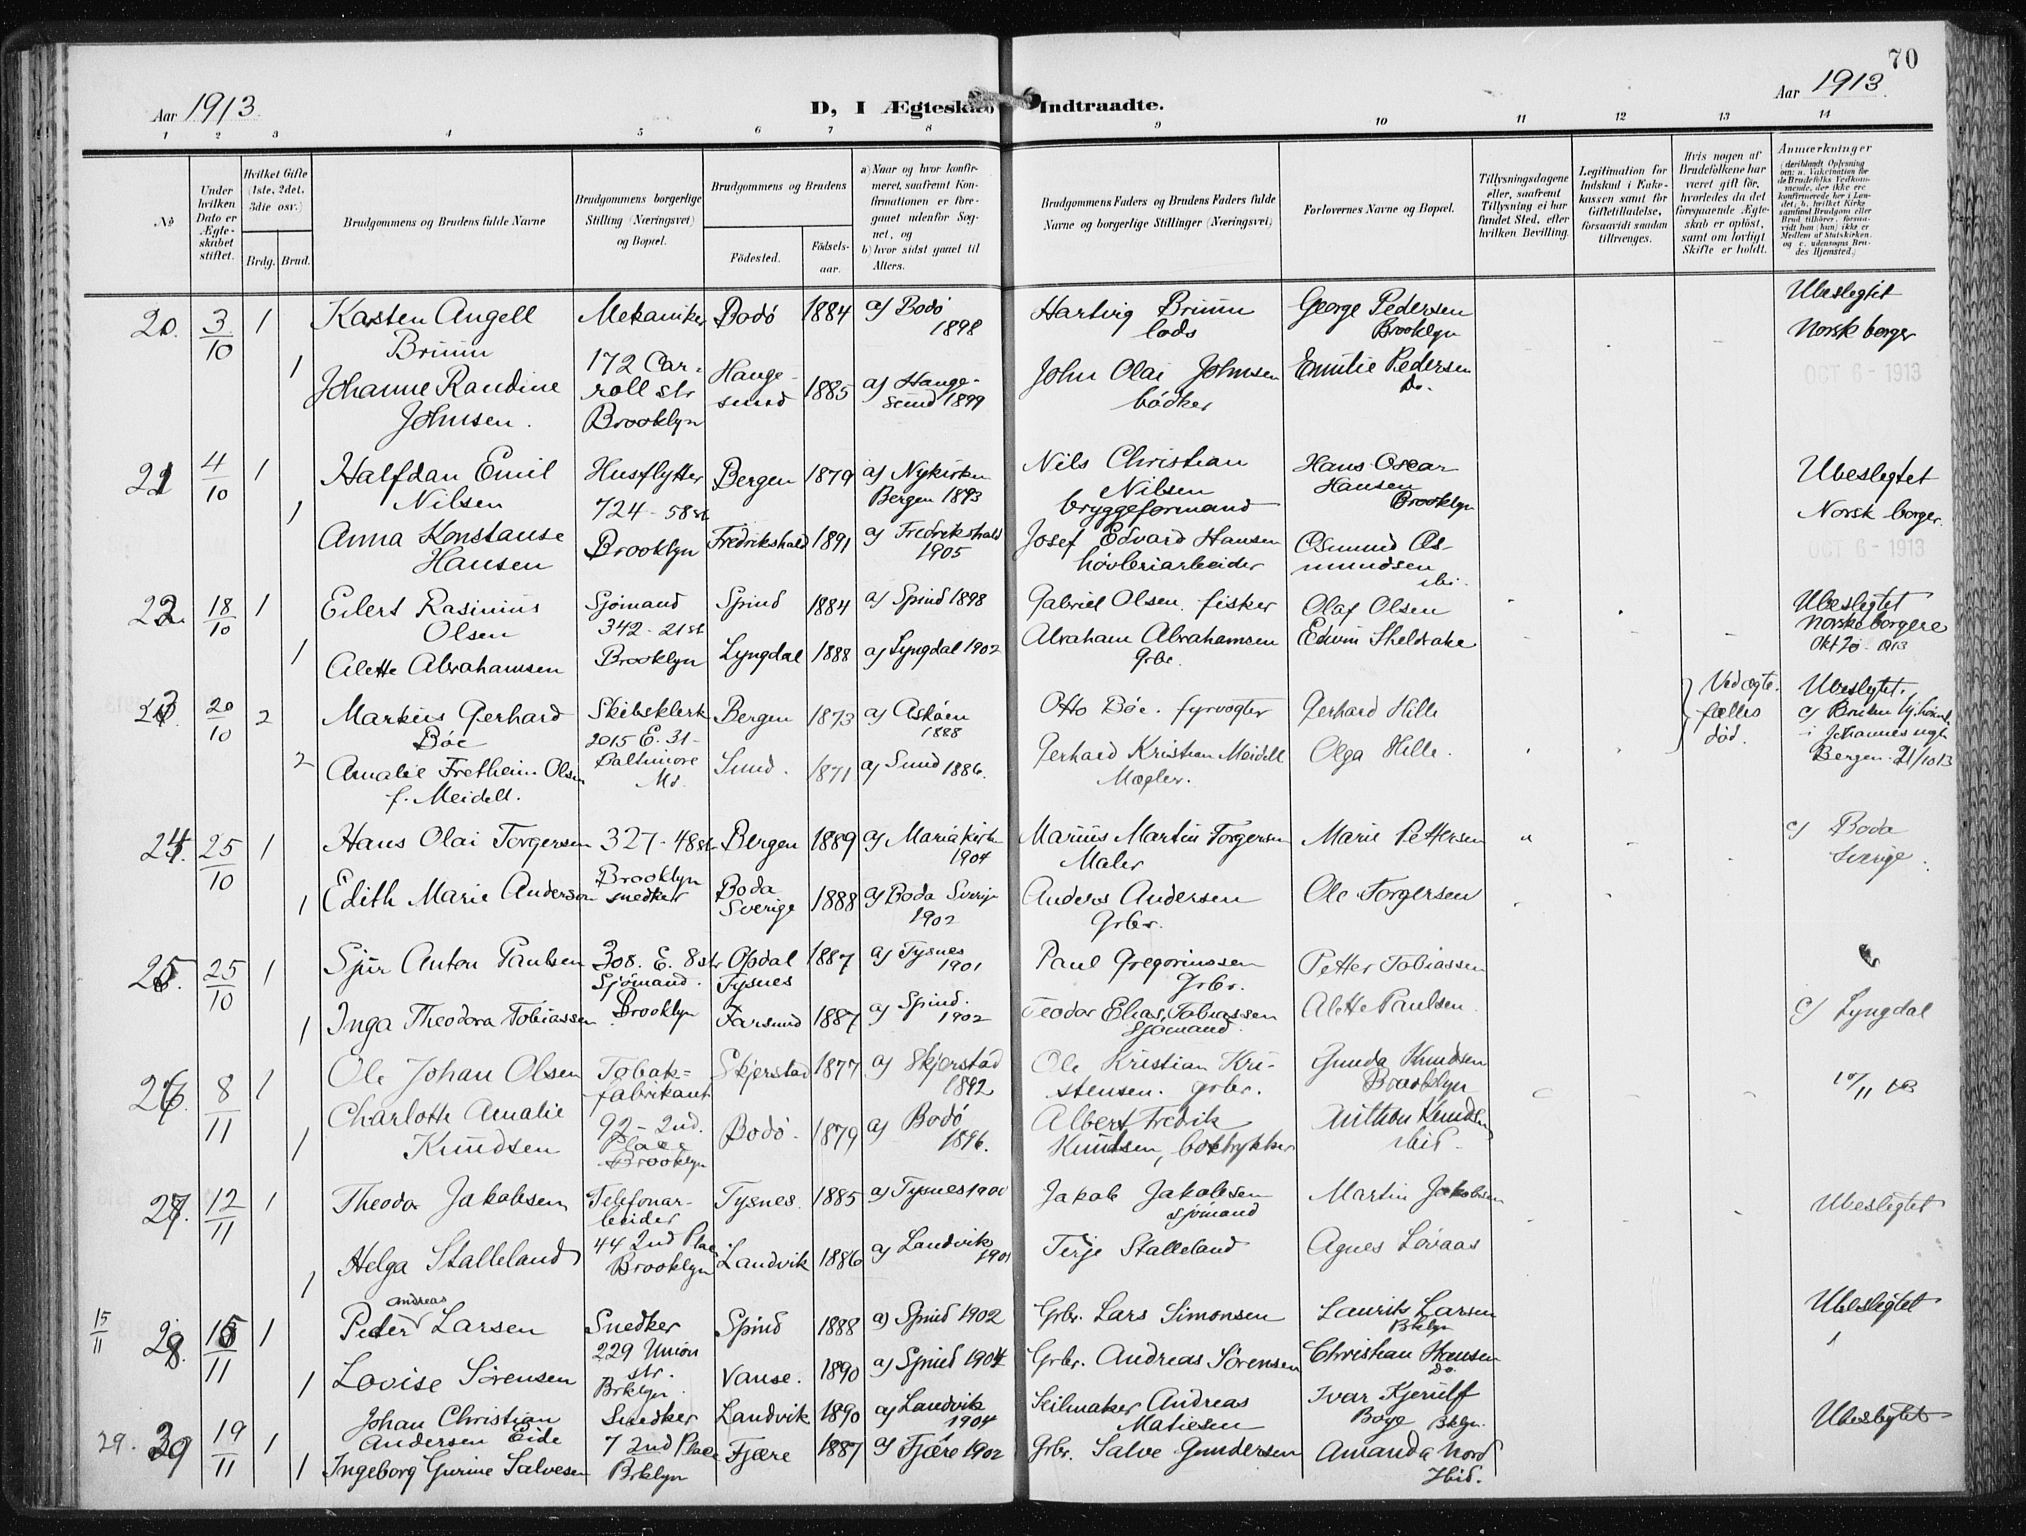 70
Aar 1913
D, I Ægteskab Indtraadte.
Aar 1913
1 2 3 4 5 6 7 8 9 10 11 12 13 14
No
Under hvilken Dato er Ægteskabet stiftet.
Hvilket Gifte (1ste, 2det, 3die osv.)
Brdg. Brud.
Brudgommens og Brudens fulde Navne
Brudgommens borgerlige Stilling (Næringsvei) og Bopæl.
Brudgommens og Brudens
Fødested.
Fødselsaar.
a) Naar og hvor konfirmeret, saafremt Konfirmationen er foregaaet udenfor Sognet, og
b) hvor sidst gaaet til Alters.
Brudgommens Faders og Brudens Faders fulde Navne og borgerlige Stillinger (Næringsvei)
Forlovernes Navne og Bopæl.
Tillysningsdagene eller, saafremt Tillysning ei har fundet Sted, efter hvilken Bevilling.
Legitimation for Indskud i Enkekassen samt for Giftetilladelse, forsaavidt saadan tiltrænges.
Hvis nogen af Brudefolkene har været gift før, hvorledes da det foregaaende Ægteskab er opløst, samt om lovligt Skifte er holdt.
Anmærkninger
20. 3/10 1 Karsten Angell Bruun Mekaniker Bodö 1884 a) Bodö 1898 Hartvig Bruun lods George Pedersen Brooklyn Ubeslegtet Norsk borger
1 Johanne Randine Johnsen. 172 Carroll str Brooklyn Haugesund 1885 a) Haugesund 1899 John Olai Johnsen bödker Emilie Pedersen Do.
OCT 6 - 1913
21 4/10 1 Halfdan Emil Nilsen Husflytter Bergen 1879 a) Nykirken Bergen 1893 Nils Christian Nilsen bryggeformand Hans Oscar Hansen Brooklyn Ubeslegtet
1 Anna Konstanse Hansen 724 - 58 st Brooklyn Fredrikshald 1891 a) Fredrikshald 1905 Josef Edvard Hansen hövleriarbeider Osmund Osmundsen ibi. Norsk borger.
OCT 6 - 1913
22 18/10 1 Eilert Rasinius Olsen Sjömand 342 - 21 st Spind 1884 a) Spind 1898 Gabriel Olsen. fisker Olaf Olsen Ubeslegtet Norske borgere
1 Alette Abrahamsen Brooklyn Lyngdal 1888 a) Lyngdal 1902 Abraham Abrahamsen Grbr. Edwin Sheldrake Okt 20 - 1913
23 20/10 2 Markus Gerhard Böe Skibsklerk 2015 E. 31 - Bergen 1873 a) Asköen 1888 Otto Böe. fyrvogter Gerhard Hille Ved ægtefælles död. Ubeslegtet.
2 Amalie Fretheim Olsen f. Meidell. Baltimore Md. Sund. 1871 a) Sund 1886. Gerhard Kristian Meidell Mægler. Olga Hille. i Johannes Bergen. 21/10 13
24. 25/10 1 Hans Olai Torgersen 327 - 48 st Bergen 1889 a) Mariakirken 1904 Marius Martin Torgersen Maler Marie Pettersen c) Boda Sverige.
1 Edith Marie Anderson Brooklyn snedker Boda Sverige 1888 a) Boda Sverige 1902 Anders Andersen Grbr. Ole Torgersen
25. 25/10 1 Sjur Anton Paulsen 308. E. 8 str Sjömand. Opdal Tysnes 1887 a) Tysnes 1901 Paul Gregoriussen Grbr. Petter Tobiassen
1 Inga Theodora Tobiassen Brooklyn Farsund 1887 a) Spind. 1902 Teodor Elias Tobiassen Sjömand. Alette Paulsen c) Lyngdal
26. 8/11 1 Ole Johan Olsen Tobakfabrikant Skjerstad 1877 a) Skjerstad 1892 Ole Kristian Kristensen. grbr. Gunda Knudsen Brooklyn
1 Charlotte Amalie Knudsen 92 - 2nd. Place Brooklyn Bodö. 1879 a) Bodö 1896. Albert Fredrik Knudsen, boktrykker Anthon Knudsen ibid.
27. 12/11 1 Theodor Jakobsen Telefonarbeider Tysnes. 1885 a) Tysnes 1900 Jakob Jakobsen sjömand Martin Jakobsen Ubeslegtet
1 Helga Stalleland 44 2nd Place Brooklyn Landvik 1886 a) Landvik 1901 Terje Stalleland Agnes Lövaas
15/11 28. 15/11 1 Peder Andreas Larsen Snedker Spind 1888 a) Spind 1902 Grbr. Lars Simonsen Laurits Larsen Bklyn Ubeslegtet
1 Lovise Sörensen 229 Union str. Brklyn. Vanse. 1890 a) Spind 1904 Grbr. Andreas Sörensen Christian Hansen Do.
29. 39 19/11 1 Johan Christian Andersen Eide Snedker Landvik 1890 a) Landvik 1904 Seilmaker Andreas Matiesen Ivar Kjerulf Boye Bklyn. Ubeslegtet
1 Ingeborg Gurine Salvesen 7 2nd Place Brklyn Fjære 1887 a) Fjære 1902 Grbr. Salve Gundersen Amanda Nord Ibid.